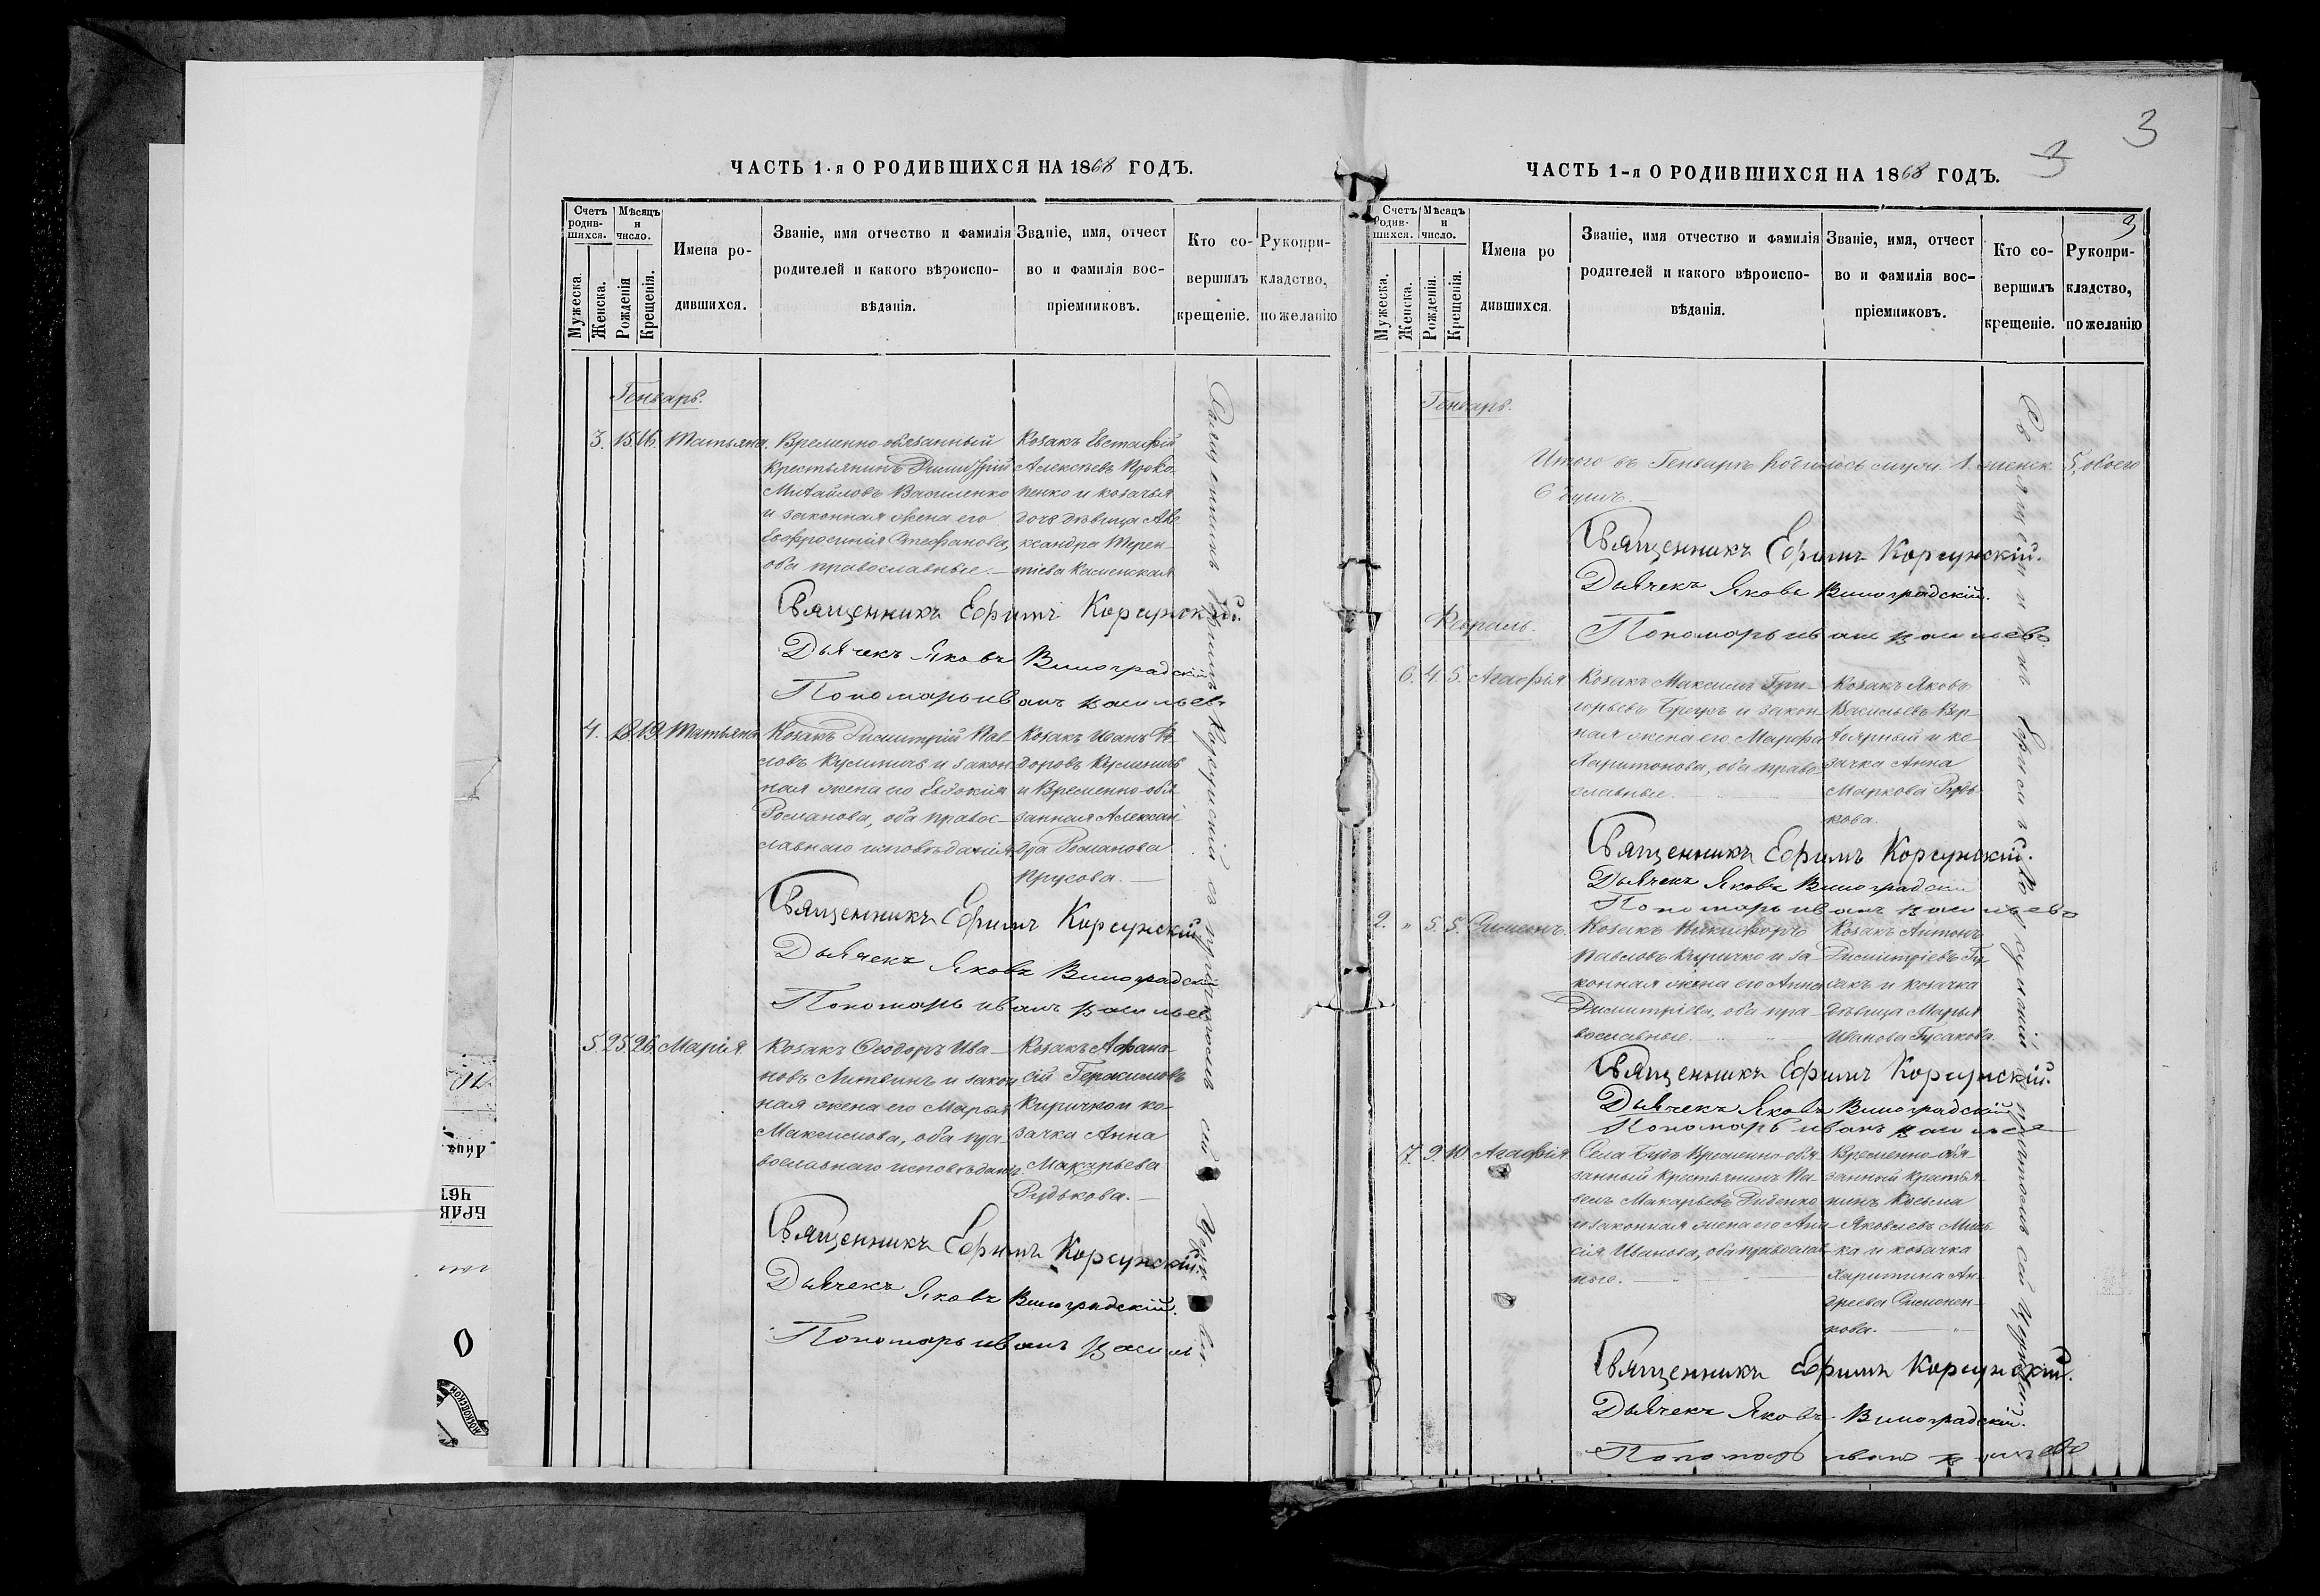 ЧАСТЬ 1-я О РОДИВШИХСЯ НА 1868 ГОДЪ.
Счетъ родив-шихся.
Мужеска.
Женска.
Мѣсяцъ и число.
Рожденія
Крещенія.
Имена ро-
дившихся.
Званіе, имя отчество и фамилія
родителей и какого вѣроиспо-
вѣданія.
Званіе, имя, отчест
во и фамилія вос-
пріемниковъ.
Кто со-
вершилъ
крещеніе.
Рукопри-
кладство,
по желанію
Генварь.
3. 15. 16. Татьяна.
Временно-обязанный
крестьянинъ Димитрій
Михайловъ Василенко
и законная жена его
Евфросинія Стефанова,
оба православные.
Козакъ Евстафій
Алексѣевъ Проко-
пенко и козачья
дочь дѣвица Але
ксандра Терен-
тіева Каменская
Священникъ Ефимъ Корсунскій.
Дьячекъ Яковъ Виноградскій
Пономарь иванъ васильевъ
4. 18. 19. Татьяна
Козакъ Димитрій Пав-
ловъ Кулиничъ и закон
ная жена его Евдокія
Романова, оба правос-
лавнаго исповѣданія
Козакъ Иванъ Ѳе
доровъ Кулиничъ
и Временно-обя-
занная Алексан
дра Романова
Прусова.
Священникъ Ефимъ Корсунскій
Дьячекъ Яковъ Виноградскій
Пономарь иванъ васильев
5. 25. 26. Марія.
Козакъ Ѳеодоръ Ива-
новъ Литвинъ и закон
ная жена его Марья
Максимова, оба пра-
вославнаго исповѣдан.
Козакъ Афана-
сій Герасимовъ
Киричко и ко-
зачка Анна
Макарьева
Рудькова.
Священникъ Ефимъ Корсунскій.
Дьячекъ Яковъ Виноградскій.
Пономарь иванъ василь
Священникъ Ефимъ Корсунскій съ причтомъ сей Церкви
3
ЧАСТЬ 1-я О РОДИВШИХСЯ НА 1868 ГОДЪ.
3
Счетъ Родив-шихся.
Мужеска.
Женска.
Мѣсяцъ и число.
Рожденія.
Крещенія.
Имена ро
дившихся.
Званіе, имя отчество и фамилія
родителей и какого вѣроиспо-
вѣданія.
Званіе, имя, отчест
во и фамилія вос-
пріемниковъ.
Кто со-
вершилъ
крещеніе.
Рукопри-
кладство,
по желанію
Генварь.
Итого въ Генварѣ родилось муж. 1. женск. 5, обоего
6 душъ.
Священникъ Ефимъ Корсунскій.
Дьячекъ Яковъ Виноградскій.
Пономарь иванъ васильевъ
Февраль.
6. 4. 5. Агафія
Козакъ Максимъ Гри-
горьевъ и закон
ная жена его Марфа
Харитонова, оба право-
славные.
Козакъ Яковъ
Васильевъ
и ко
зачка Анна
Маркова Рудь-
кова.
Священникъ Ефимъ Корсунскій.
Дьячекъ Яковъ Виноградскій
Пономарь иванъ васильевъ
2. " 5. 5. Симеонъ.
Козакъ Никифоръ
Павловъ Киричко и за-
конная жена его Анна
Димитріева, оба пра-
вославные
Козакъ Антонъ
Димитріевъ Гу
сакъ и козачка
дѣвица Марья
Иванова Гусакова.
Священникъ Ефимъ Корсунскій.
Дьячекъ Яковъ Виноградскій
Пономарь иванъ васильев
7. 9. 10. Агафія
Села Временно-обя-
занный крестьянинъ Па-
велъ Макарьевъ Диденко
и законная жена его Ана
сія Иванова, оба православ-
ные.
Временно-обя-
занный крестья-
нинъ Косьма
Яковлевъ
ка и козачка
Харитина Ан-
дреева Симонен-
кова.
Священникъ Ефимъ Корсунскій.
Дьячекъ Яковъ Виноградскій.
Пономарь иванъ васильевъ
Священникъ Ефимъ Корсунскій съ причтомъ сей Церкви